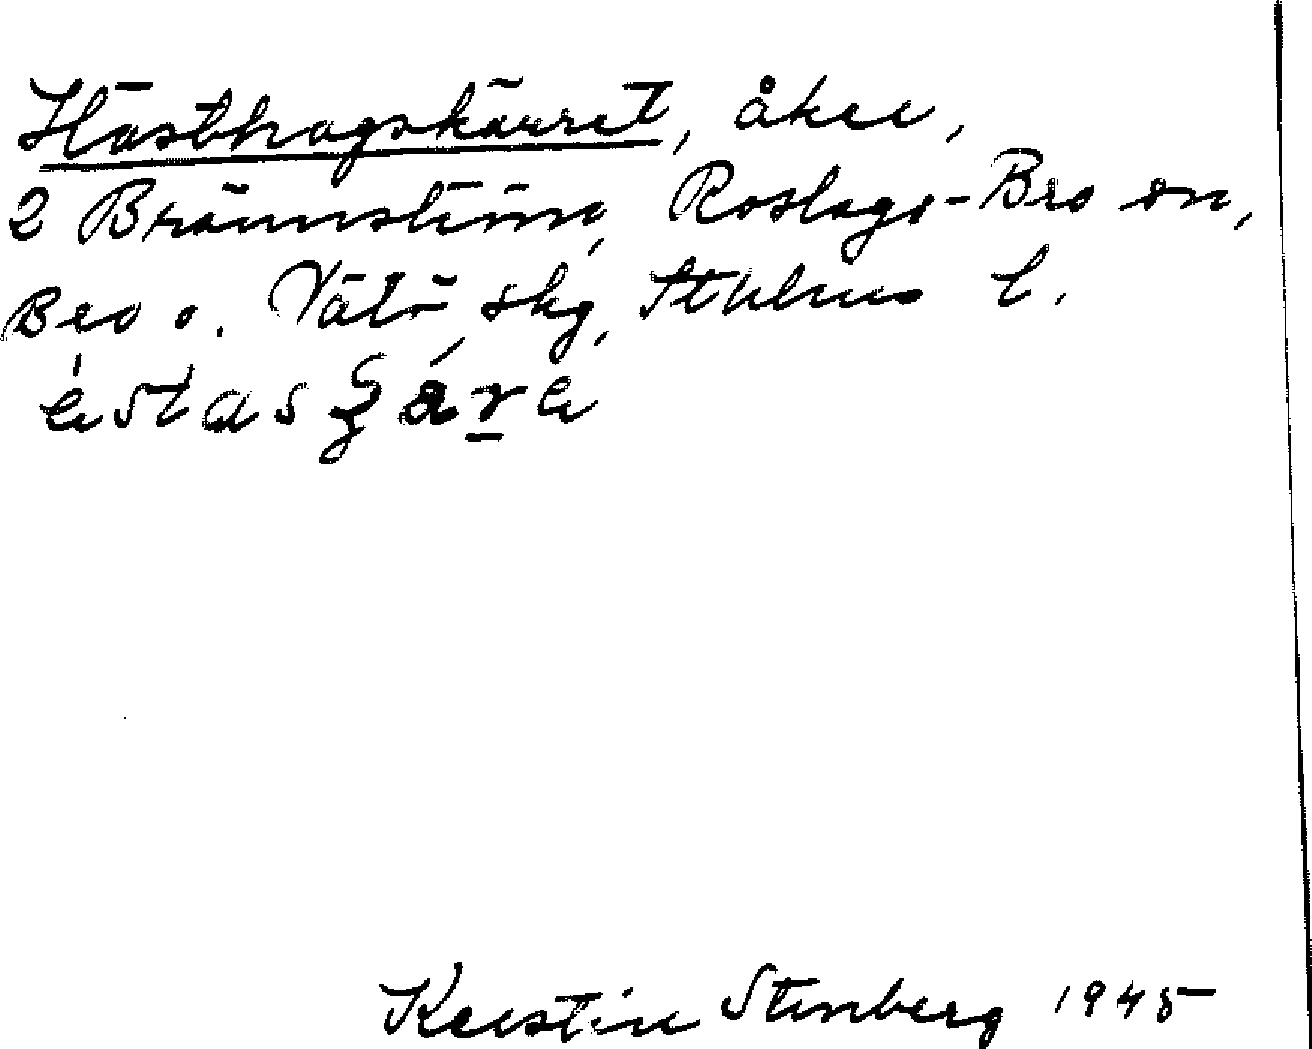 Hästhagskärret, åker,
2 Brännslinna, Roslags-Bro sn,
Bro o. Vätö skg, Sthlms l.
Kerstin Stenberg 1945